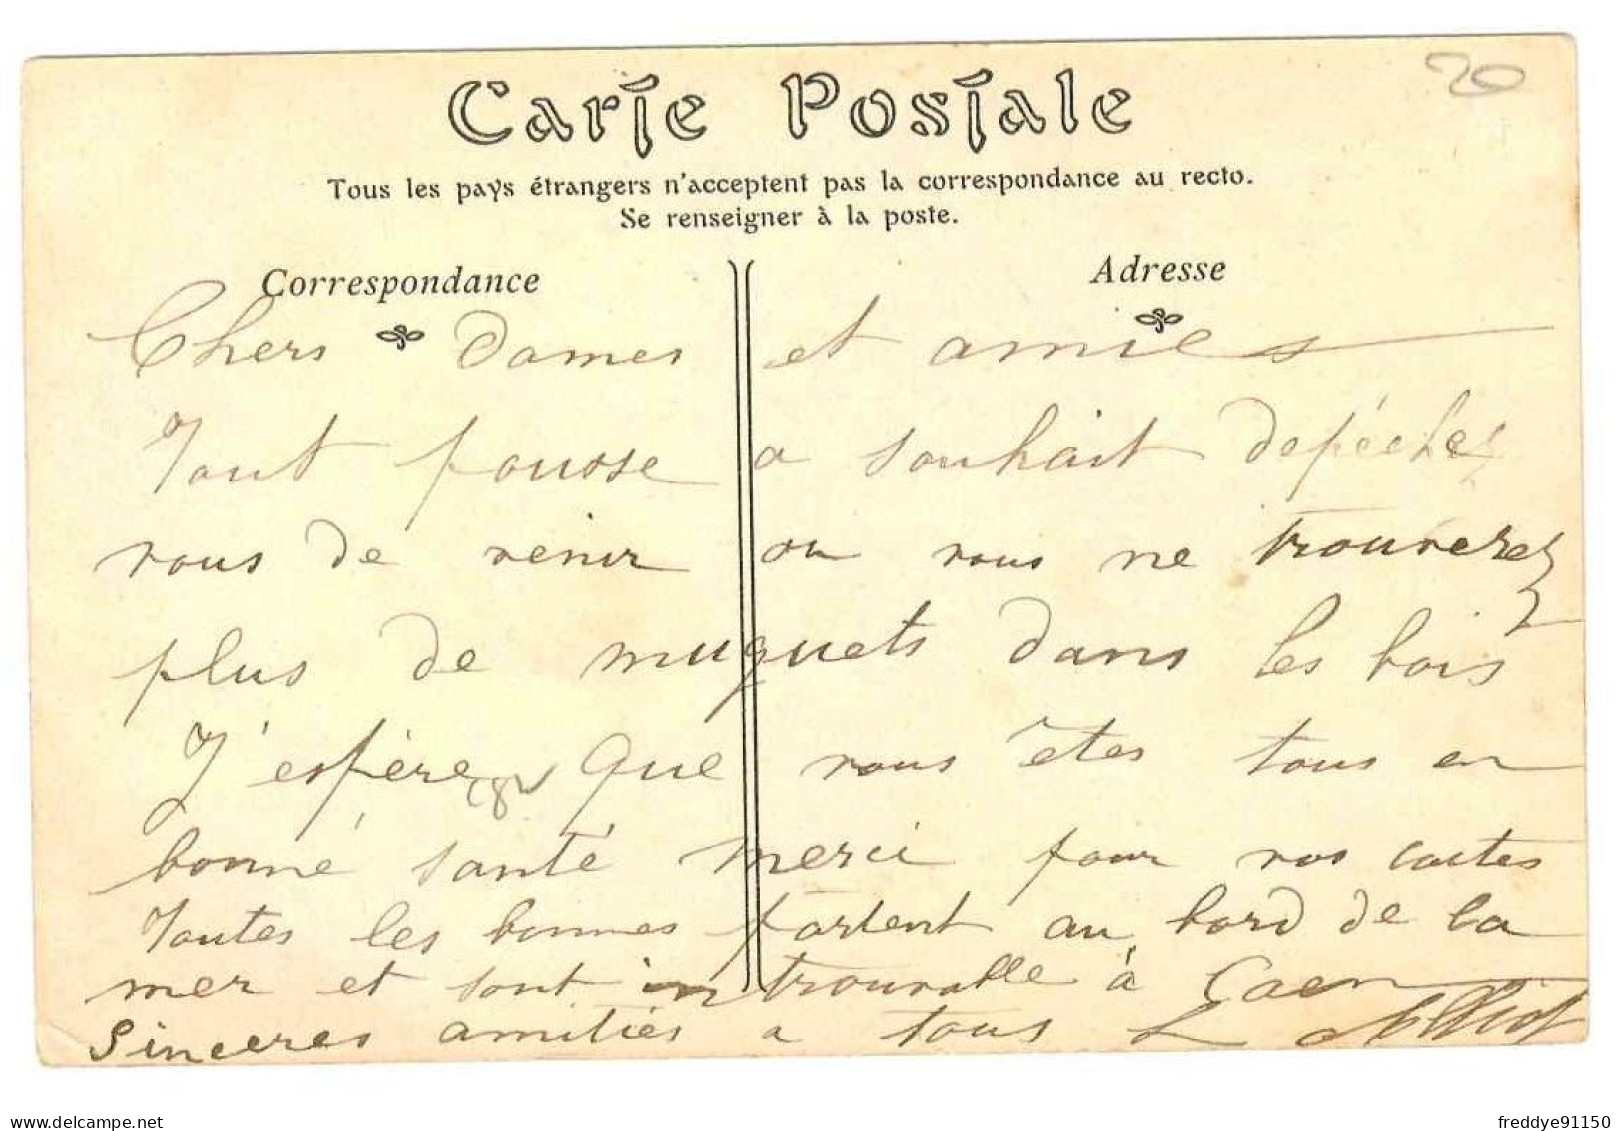 20
Carte Postale
Tous les pays étrangers n'acceptent pas la correspondance au recto.
Se renseigner à la poste.
Correspondance
Adresse
Chers Dames et amies
Tout pousse a souhait depéchez
vous de venir ou vous ne trouverez
plus de muguets dans les bois
J'espère que vous êtes tous en
bonné santé merci pour vos cartes
Toutes les bonnes partent au bord de la
mer et sont introuvable à Caen
Sinceres amitiés a tous L
delcampe.net
freddye91150